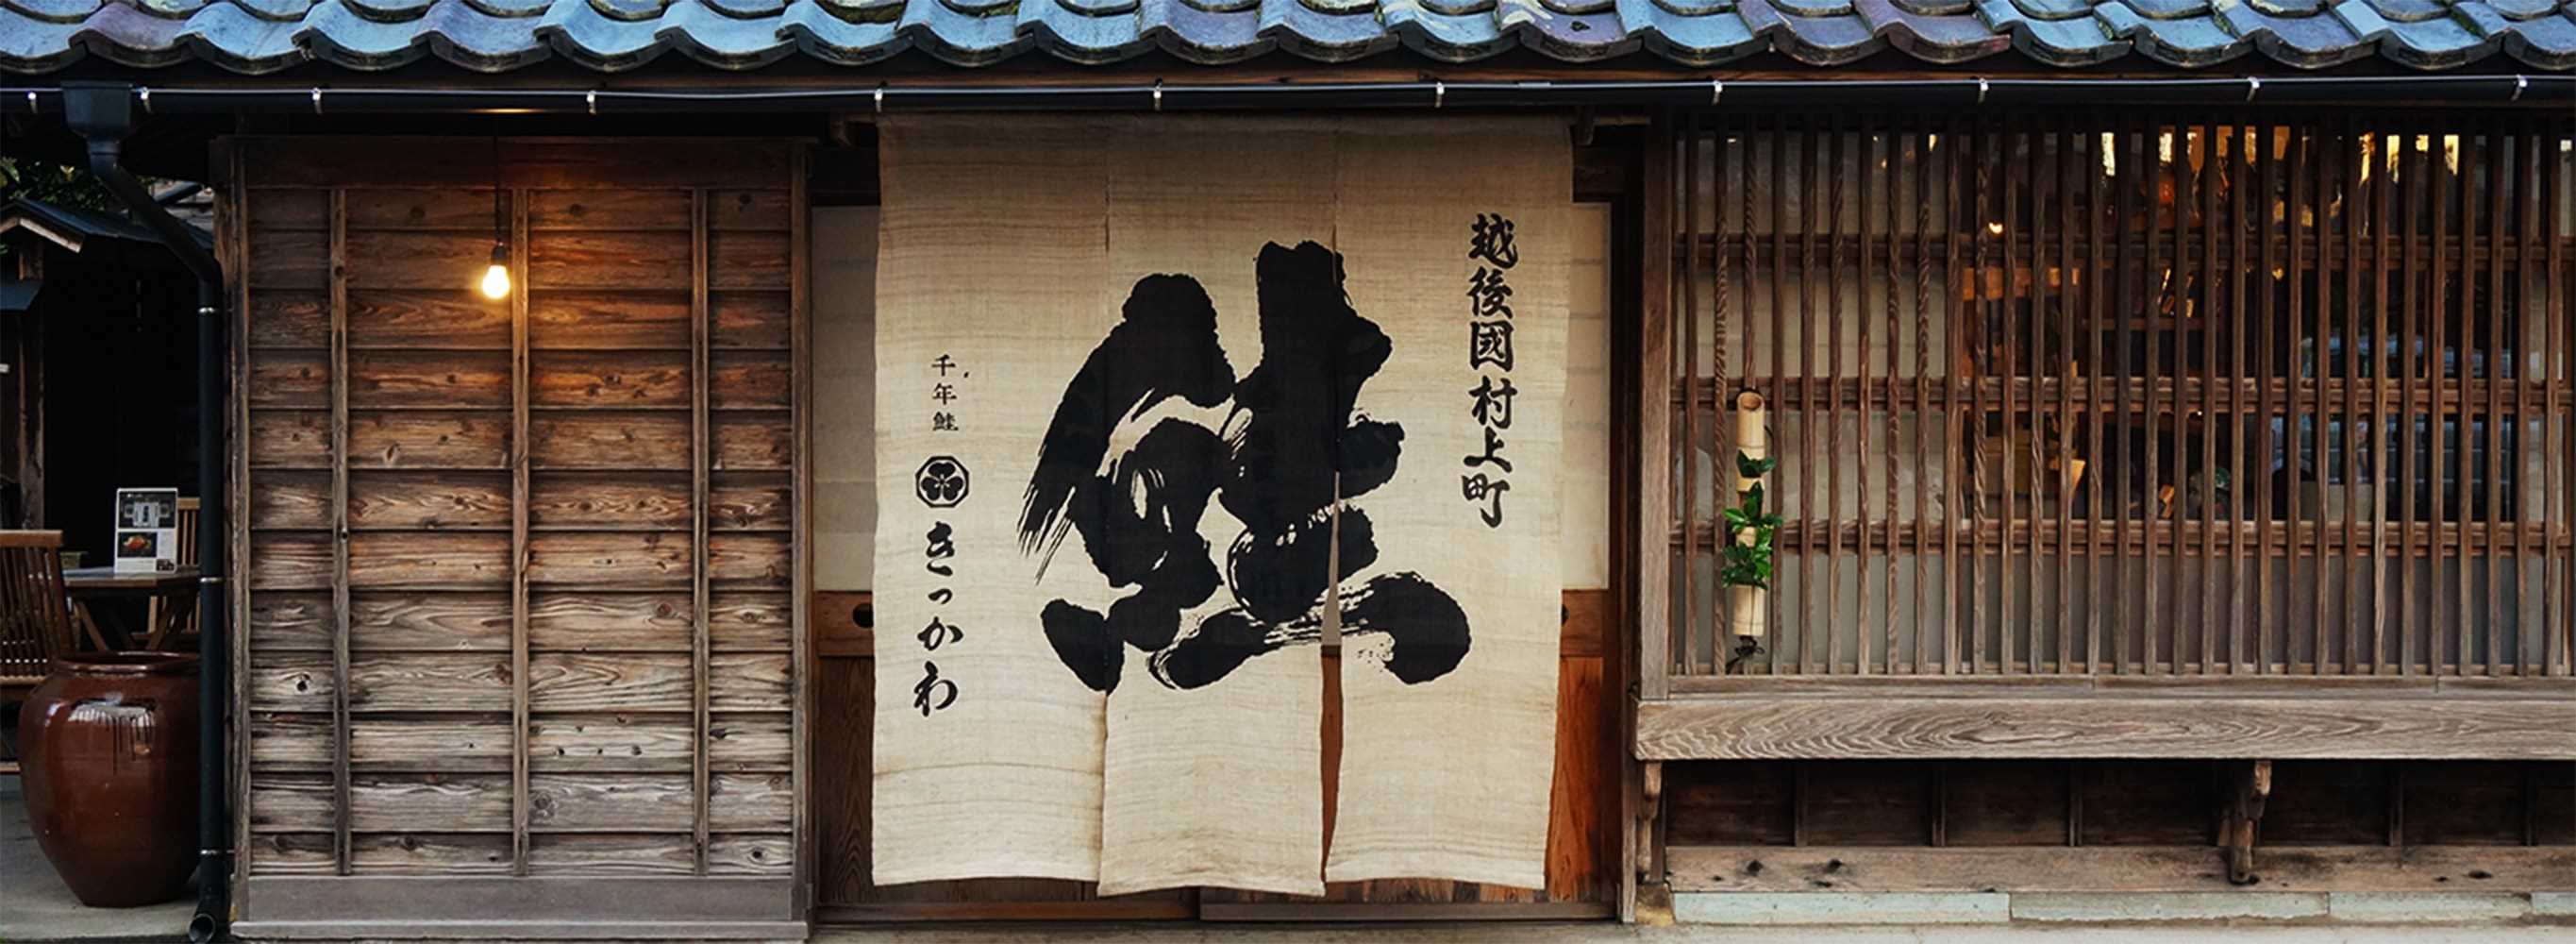 越後國村上町
鮭
千年鮭
きっかわ